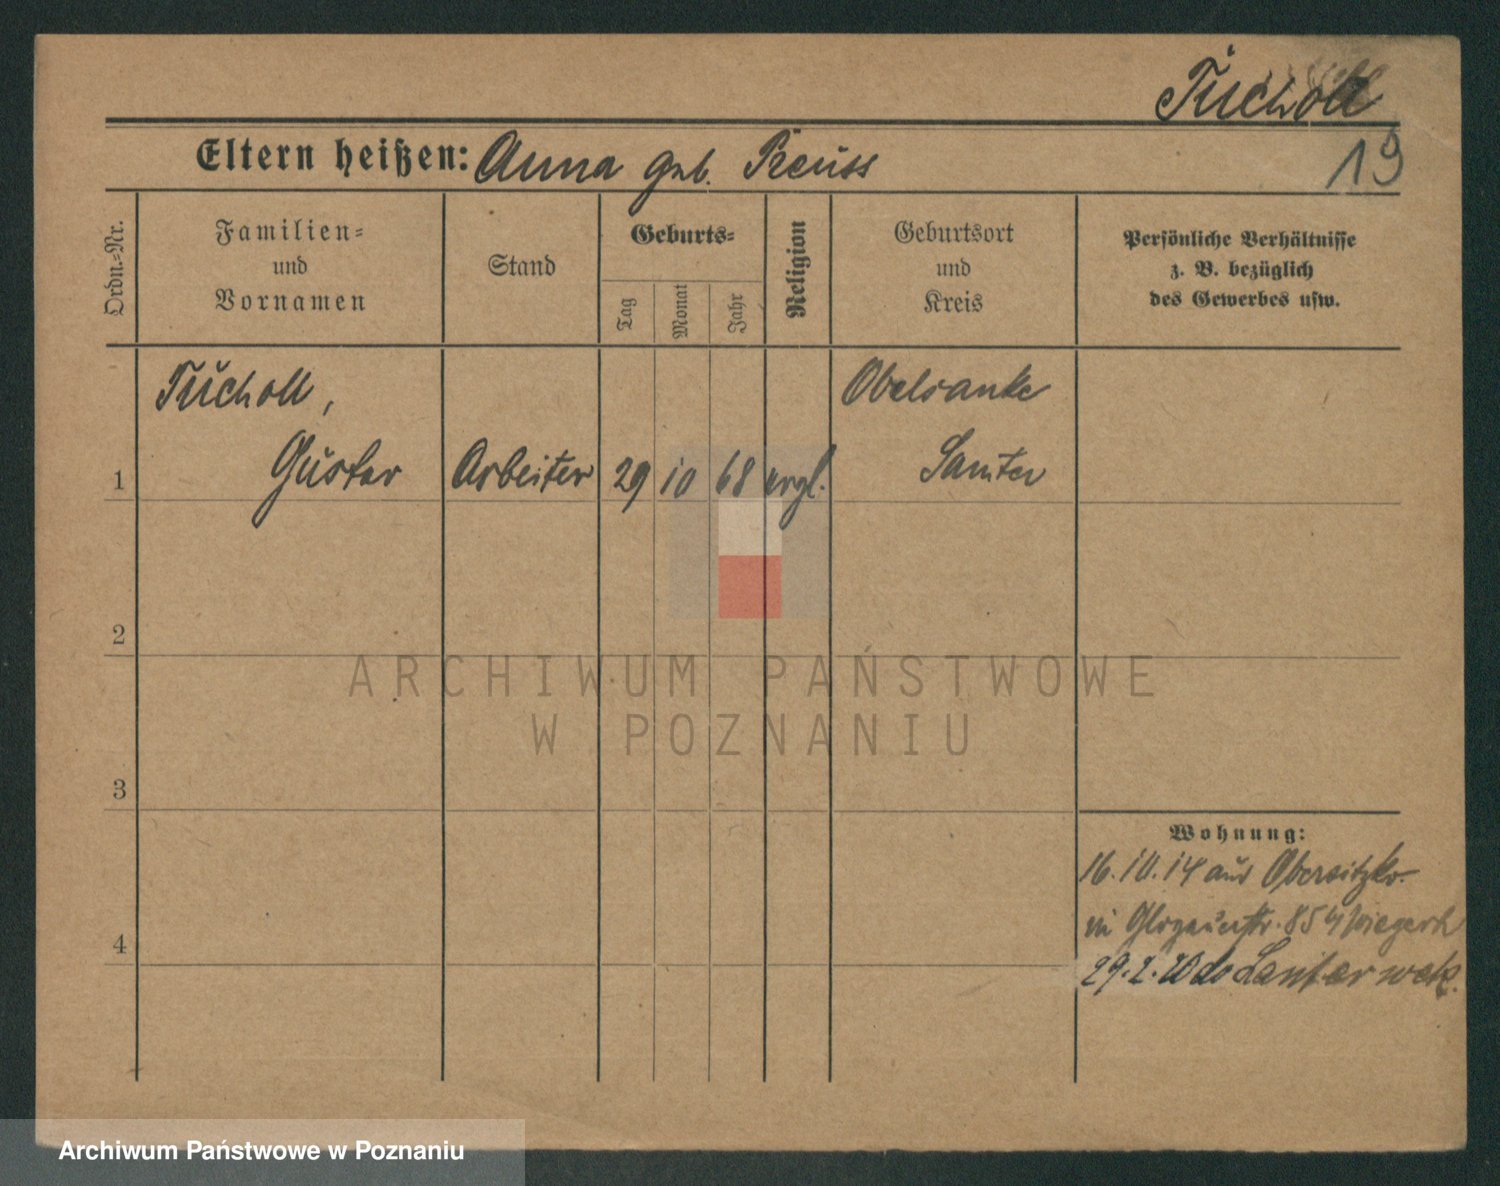 Tucholl
19
Eltern heißen: Anna geb. Preuss
Ordn.-Nr.
Familien-
und
Vornamen
Stand
Geburts-
Tag
Monat
Jahr
Religion
Geburtsort
und
Kreis
Persönliche Verhältnisse
z. B. bezüglich
des Gewerbes usw.
Tucholl,
Gustav
Arbeiter
29
10
68
evgl.
Samter
1
2
3
4
ARCHIWUM PAŃSTWOWE
W POZNANIU
Wohnung:
16.10.14 aus Obersitzko
in Glogauerstr. 85
Archiwum Państwowe w Poznaniu